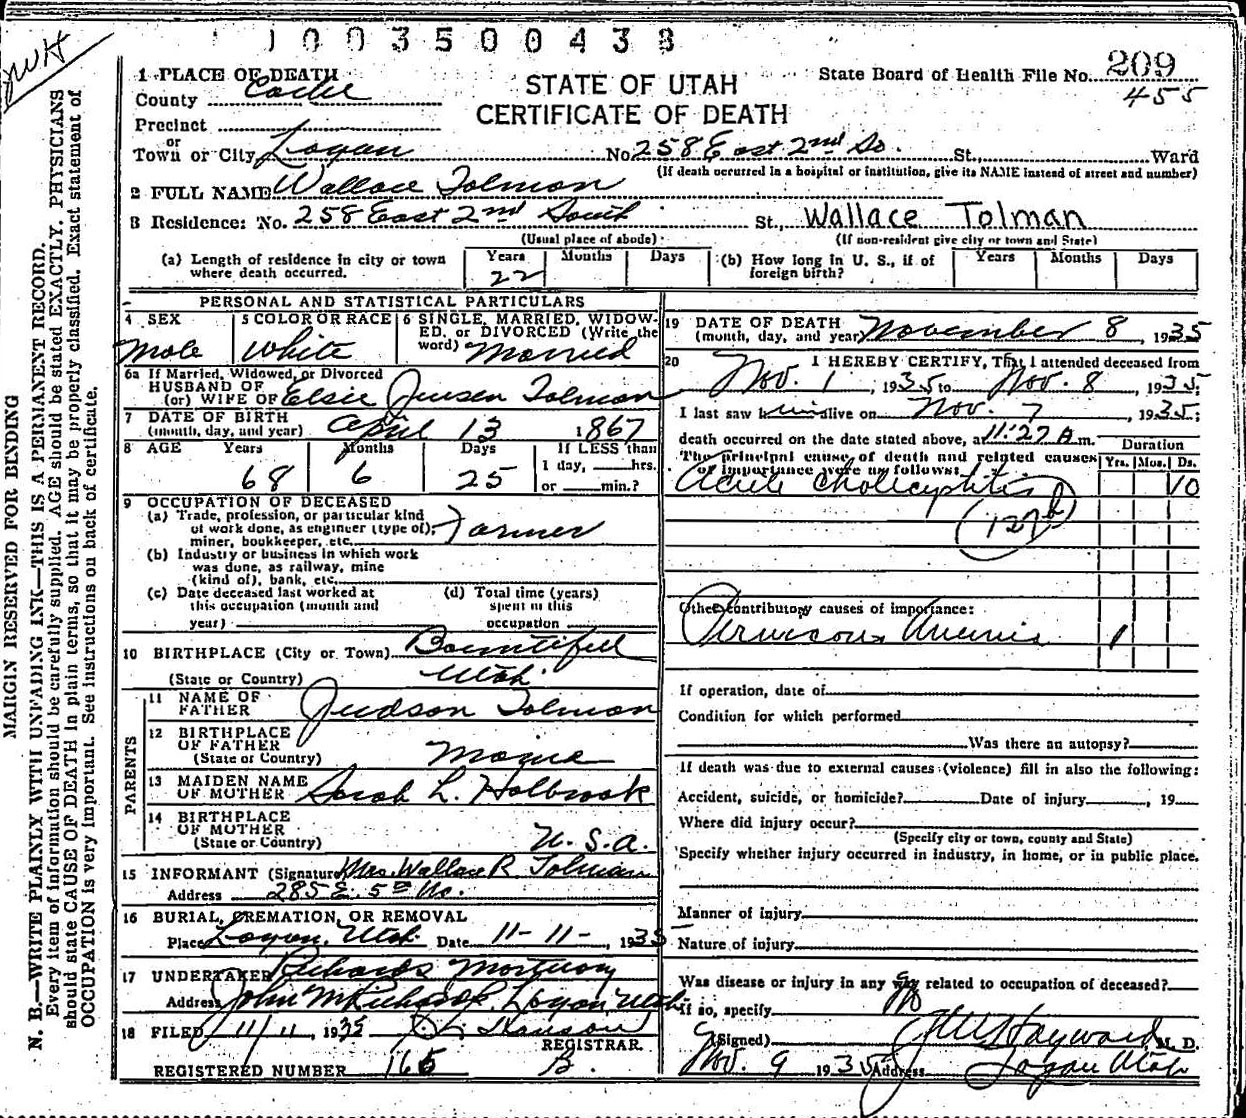 1003500438
JWH
209
State Board of Health File No.
455
STATE OF UTAH
CERTIFICATE OF DEATH
1 PLACE OF DEATH
County Cache
Precinct
or
Town or City Logan No. 258 East 2nd So. St., Ward
(If death occurred in a hospital or institution, give its NAME instead of street and number)
2 FULL NAME Wallace Tolman
3 Residence: No. 258 East 2nd South St., Wallace Tolman
(Usual place of abode) (If non-resident give city or town and State)
(a) Length of residence in city or town where death occurred. Years 22 Months Days
(b) How long in U. S., if of foreign birth? Years Months Days
PERSONAL AND STATISTICAL PARTICULARS
4 SEX
Male
5 COLOR OR RACE
White
6 SINGLE, MARRIED, WIDOW-
ED, or DIVORCED (Write the
word) Married
6a If Married, Widowed, or Divorced
HUSBAND OF
(or) WIFE OF Elsie Jensen Tolman
7 DATE OF BIRTH
(month, day, and year) April 13 1867
8 AGE Years Months Days If LESS than
68 6 25 1 day, hrs.
or min.?
9 OCCUPATION OF DECEASED
(a) Trade, profession, or particular kind
of work done, as engineer (type of),
miner, bookkeeper, etc. Farmer
(b) Industry or business in which work
was done, as railway, mine
(kind of), bank, etc.
(c) Date deceased last worked at
this occupation (month and
year)
(d) Total time (years)
spent in this
occupation
10 BIRTHPLACE (City or Town) Bountiful
(State or Country) Utah
PARENTS
11 NAME OF
FATHER Judson Tolman
12 BIRTHPLACE
OF FATHER
(State or Country) Maine
13 MAIDEN NAME
OF MOTHER Sarah L. Holbrook
14 BIRTHPLACE
OF MOTHER
(State or Country) U. S. A.
15 INFORMANT (Signature) Mrs. Wallace R. Tolman
Address 285 E. 5th No.
16 BURIAL, CREMATION, OR REMOVAL
Place Logan, Utah Date 11-11-, 1935
17 UNDERTAKER Richards Mortuary
Address John M Richards Logan Utah
18 FILED 11/11, 1935
REGISTRAR.
REGISTERED NUMBER 165 B.
19 DATE OF DEATH
(month, day, and year) November 8, 1935
20 I HEREBY CERTIFY, That I attended deceased from
Nov. 1, 1935 to Nov. 8 1935;
I last saw him alive on Nov. 7, 1935;
death occurred on the date stated above, at 11:27 A m.
The principal cause of death and related causes
of importance were as follows:
Duration
Yrs. Mos. Ds.
Acute Cholecystitis 10
(127b)
Other contributory causes of importance:
Pernicious Anemia 1
If operation, date of
Condition for which performed
Was there an autopsy?
If death was due to external causes (violence) fill in also the following:
Accident, suicide, or homicide? Date of injury, 19
Where did injury occur?
(Specify city or town, county and State)
Specify whether injury occurred in industry, in home, or in public place.
Manner of injury
Nature of injury
Was disease or injury in any way related to occupation of deceased?
If so, specify no
(Signed) JW Hayward M. D.
Nov. 9 1935 Address Logan Utah
MARGIN RESERVED FOR BINDING
N. B.—WRITE PLAINLY WITH UNFADING INK—THIS IS A PERMANENT RECORD.
Every item of information should be carefully supplied. AGE should be stated EXACTLY. PHYSICIANS
should state CAUSE OF DEATH in plain terms, so that it may be properly classified. Exact statement of
OCCUPATION is very important. See instructions on back of certificate.